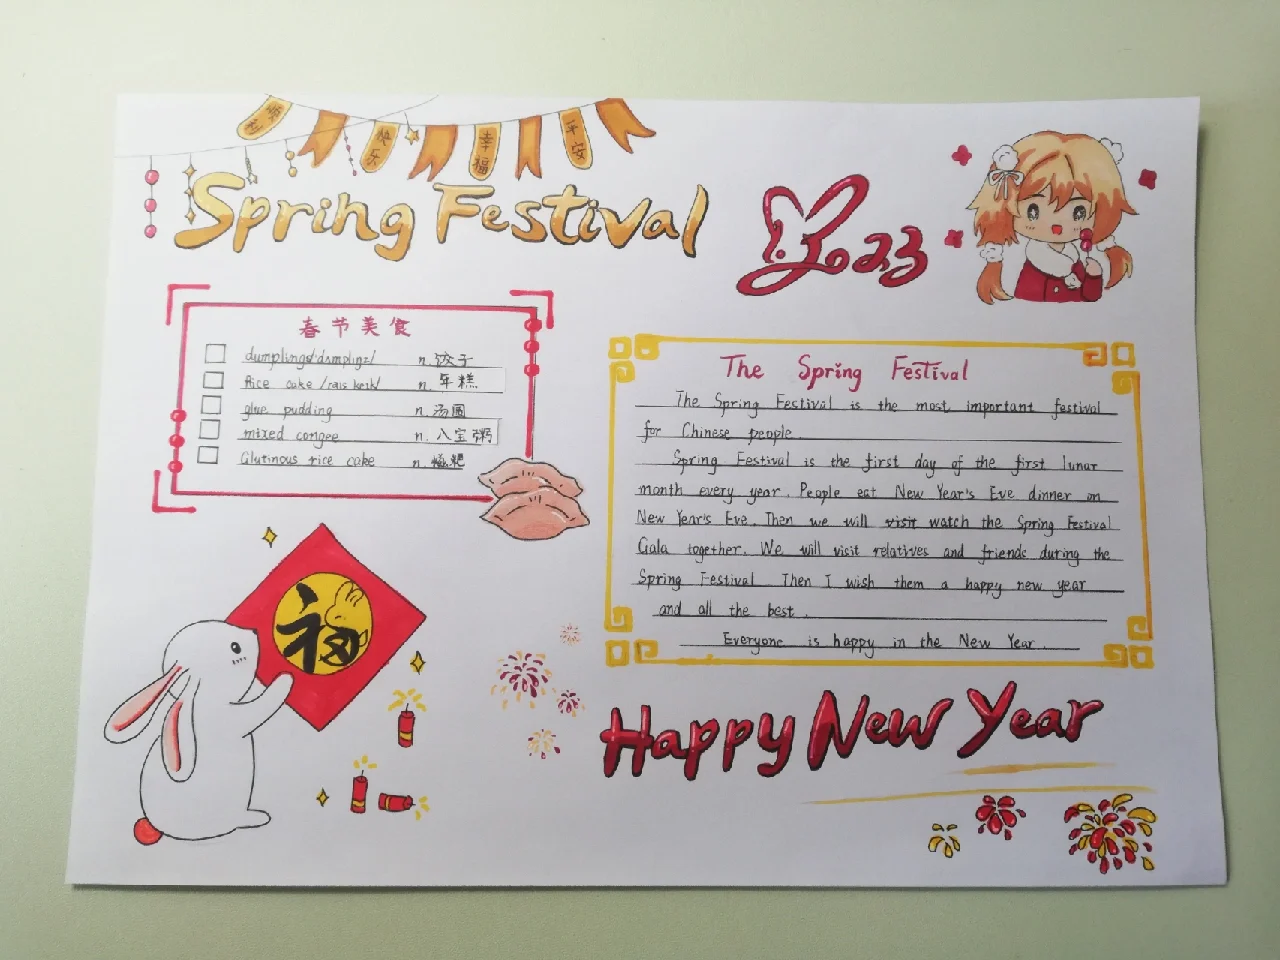 顺利
快乐
幸福
平安
Spring Festival
2023
春节美食
dumplings/'dʌmplɪŋz/ n.饺子
Rice cake /raɪs keɪk/ n.年糕
glue pudding n.汤圆
mixed congee n.八宝粥
Glutinous rice cake n.糍粑
The Spring Festival
The Spring Festival is the most important festival
for Chinese people.
Spring Festival is the first day of the first lunar
month every year. People eat New Year's Eve dinner on
New Year's Eve. Then we will visit watch the Spring Festival
Gala together. We will visit relatives and friends during the
Spring Festival. Then I wish them a happy new year
and all the best.
Everyone is happy in the New Year.
福
Happy New Year